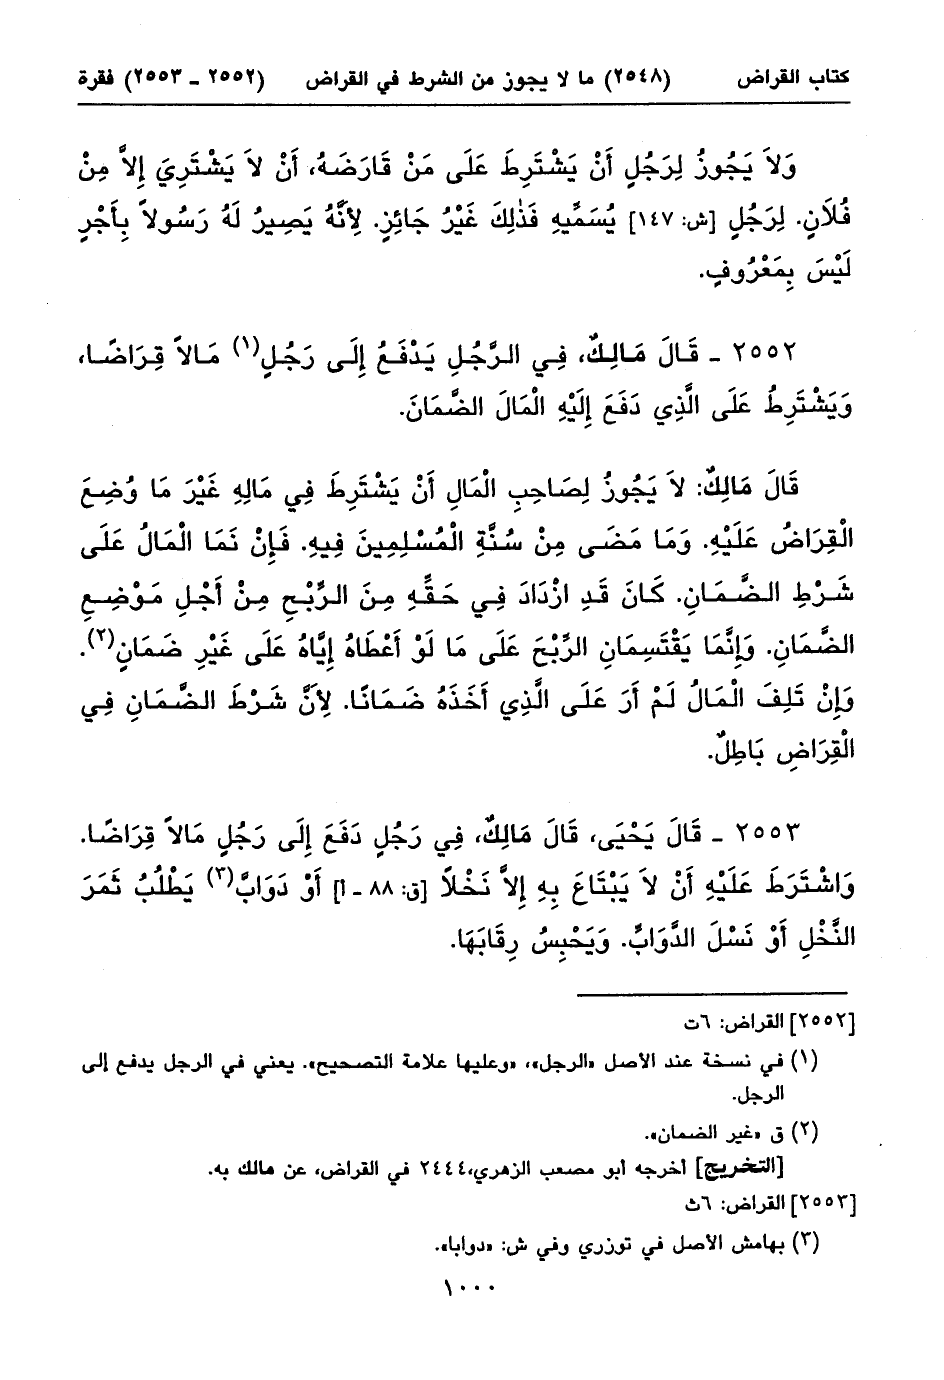 كتاب القراض (٢٥٤٨) ما لا يجوز من الشرط في القراض (٢٥٥٢ - ٢٥٥٣) فقرة
وَلاَ يَجُوزُ لِرَجُلٍ أَنْ يَشْتَرِطَ عَلَى مَنْ قَارَضَهُ، أَنْ لاَ يَشْتَرِيَ إِلاَّ مِنْ
فُلَانٍ. لِرَجُلٍ [ش: ١٤٧] يُسَمِّيهِ فَذٰلِكَ غَيْرُ جَائِزٍ. لِأَنَّهُ يَصِيرُ لَهُ رَسُولاً بِأَجْرٍ
لَيْسَ بِمَعْرُوفٍ.
٢٥٥٢ - قَالَ مَالِكٌ، فِي الرَّجُلِ يَدْفَعُ إِلَى رَجُلٍ(١) مَالاً قِرَاضًا،
وَيَشْتَرِطُ عَلَى الَّذِي دَفَعَ إِلَيْهِ الْمَالَ الضَّمَانَ.
قَالَ مَالِكٌ: لاَ يَجُوزُ لِصَاحِبِ الْمَالِ أَنْ يَشْتَرِطَ فِي مَالِهِ غَيْرَ مَا وُضِعَ
الْقِرَاضُ عَلَيْهِ. وَمَا مَضَى مِنْ سُنَّةِ الْمُسْلِمِينَ فِيهِ. فَإِنْ نَمَا الْمَالُ عَلَى
شَرْطِ الضَّمَانِ. كَانَ قَدِ ازْدَادَ فِي حَقِّهِ مِنَ الرِّبْحِ مِنْ أَجْلِ مَوْضِعِ
الضَّمَانِ. وَإِنَّمَا يَقْتَسِمَانِ الرِّبْحَ عَلَى مَا لَوْ أَعْطَاهُ إِيَّاهُ عَلَى غَيْرِ ضَمَانٍ(٢).
وَإِنْ تَلِفَ الْمَالُ لَمْ أَرَ عَلَى الَّذِي أَخَذَهُ ضَمَانًا. لِأَنَّ شَرْطَ الضَّمَانِ فِي
الْقِرَاضِ بَاطِلٌ.
٢٥٥٣ - قَالَ يَحْيَى، قَالَ مَالِكٌ، فِي رَجُلٍ دَفَعَ إِلَى رَجُلٍ مَالاً قِرَاضًا.
وَاشْتَرَطَ عَلَيْهِ أَنْ لاَ يَبْتَاعَ بِهِ إِلاَّ نَخْلاً [ق: ٨٨ - أ] أَوْ دَوَابَّ(٣) يَطْلُبُ ثَمَرَ
النَّخْلِ أَوْ نَسْلَ الدَّوَابِّ. وَيَحْبِسُ رِقَابَهَا.
[٢٥٥٢] القراض: ٦ت
(١) في نسخة عند الأصل «الرجل»، «وعليها علامة التصحيح». يعني في الرجل يدفع إلى
الرجل.
(٢) ق «غير الضمان».
[التخريج] أخرجه أبو مصعب الزهري،٢٤٤٤ في القراض، عن مالك به.
[٢٥٥٣] القراض: ٦ث
(٣) بهامش الأصل في توزري وفي ش: «دوابا».
١٠٠٠